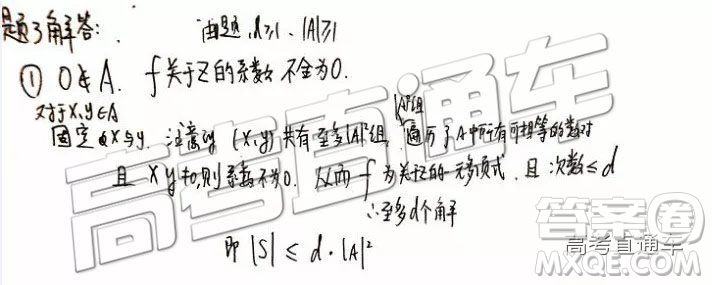 题3解答: 由题, d≥1, |A|≥1
① 0∉A. f关于Z的系数不全为0.
对于x,y∈A
|A|²组
固定 x与y. 注意到 (x,y)共有至多|A|²组, 遍历了A中所有可相等的数对
且 xy≠0,则系数不为0. 从而 f 为关于Z的一元多项式, 且次数≤d
∴至多d个解
即 |S| ≤ d·|A|²
高考直通车
高考直通车
答案圈
MXQE.COM